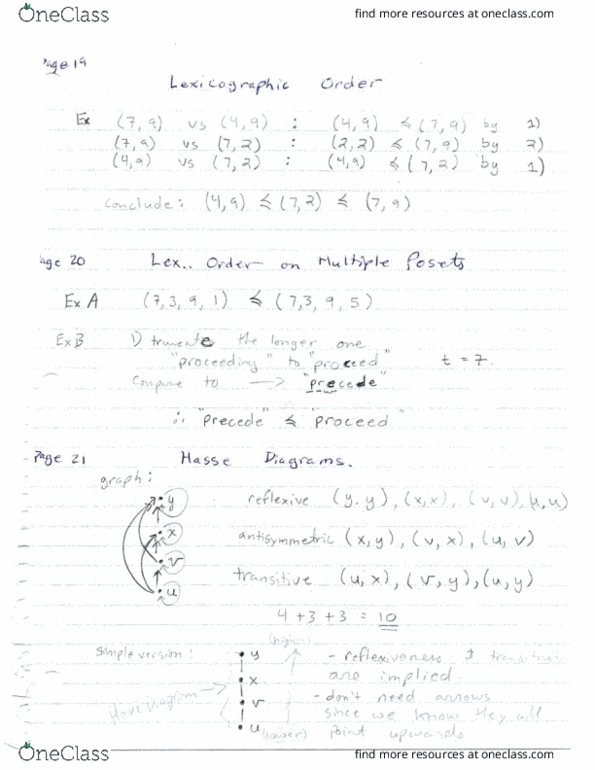 OneClass
find more resources at oneclass.com
age 19
Lexicographic Order
Ex (7,9) vs (4,9) : (4,9) ≼ (7,9) by 1)
(7,9) vs (7,2) : (2,2) ≼ (7,9) by 2)
(4,9) vs (7,2) : (4,9) ≼ (7,2) by 1)
Conclude: (4,9) ≼ (7,2) ≼ (7,9)
age 20 Lex.. Order on Multiple Posets
Ex A (7,3,9,1) ≼ (7,3,9,5)
Ex B 1) truncate the longer one
"proceeding" to "proceed" t = 7.
Compare to → "precede"
∴ "precede" ≼ "proceed"
Page 21 Hasse Diagrams.
graph:
y reflexive (y.y), (x,x), (v,v), (u,u)
x antisymmetric (x,y), (v,x), (u,v)
v
u transitive (u,x), (v,y), (u,y)
4 + 3 + 3 = 10
(higher)
Simple version: y - reflexiveness & transitivity
x are implied.
Hasse Diagram → v - don't need arrows
since we know they all
u (lower) point upwards
OneClass
find more resources at oneclass.com